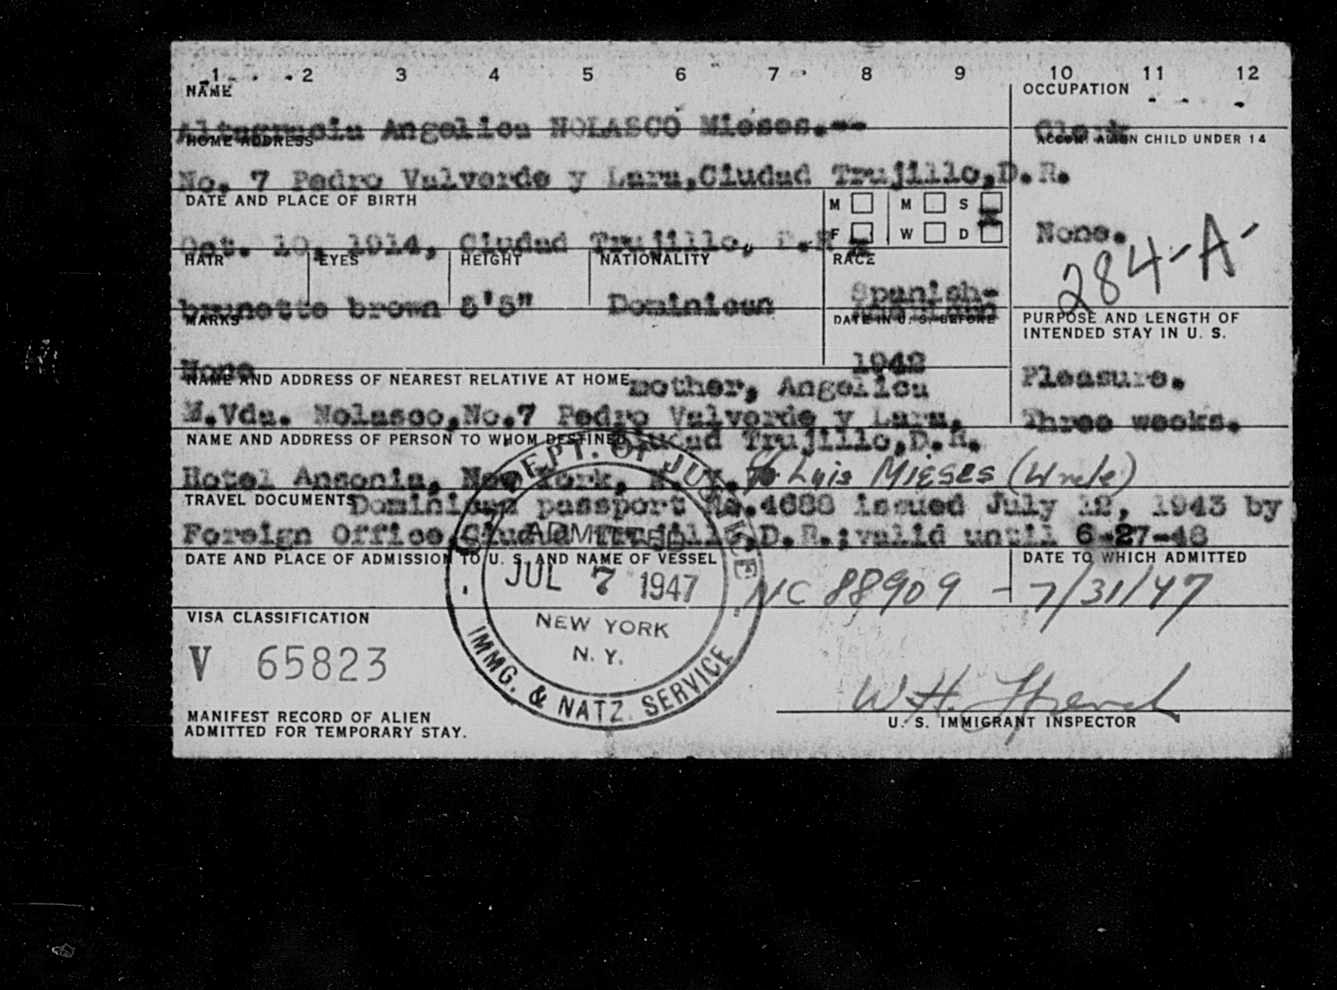 1 2 3 4 5 6 7 8 9 10 11 12
NAME
OCCUPATION
Altagracia Angelica NOLASCO Mieses.--
Clerk
HOME ADDRESS
ACCOM. ALIEN CHILD UNDER 14
No. 7 Pedro Valverde y Lara,Ciudad Trujillo,D.R.
DATE AND PLACE OF BIRTH
M M S
F W D
x
x
None.
Oct. 10, 1914, Ciudad Trujillo, D.R
284-A-
HAIR EYES HEIGHT NATIONALITY RACE
Spanish-
brunette brown 5'5" Dominican
MARKS
DATE IN U. S. BEFORE
PURPOSE AND LENGTH OF
INTENDED STAY IN U. S.
None
1942
NAME AND ADDRESS OF NEAREST RELATIVE AT HOME
mother, Angelica
Pleasure.
M.Vda. Nolasco,No.7 Pedro Valverde y Lara,
Three weeks.
NAME AND ADDRESS OF PERSON TO WHOM DESTINED
Ciudad Trujillo,D.R.
Hotel Ansonia, New York, N.Y. % Luis Mieses (Uncle)
TRAVEL DOCUMENTS
Dominican passport No.4688 issued July 12, 1943 by
Foreign Office,Ciudad Trujillo,D.R.;valid until 6-27-48
DATE AND PLACE OF ADMISSION TO U. S. AND NAME OF VESSEL
DATE TO WHICH ADMITTED
NC 88909 - 7/31/47
DEPT. OF JUSTICE
ADMITTED
JUL 7 1947
NEW YORK
N. Y.
IMMG. & NATZ. SERVICE
VISA CLASSIFICATION
V 65823
W.H. French
MANIFEST RECORD OF ALIEN
ADMITTED FOR TEMPORARY STAY.
U. S. IMMIGRANT INSPECTOR